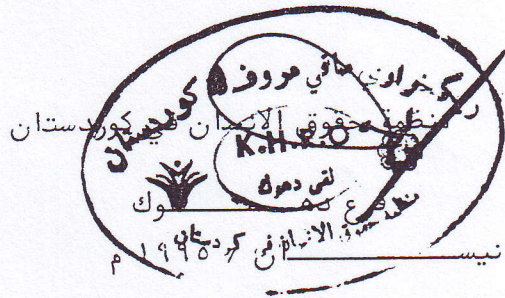 ريكخراوى مافي مروف
كوردستان
منظمة حقوق الانسان في كوردستان
K.H.R.O
لقى دهوك
فرع دهـــــوك
منظمة حقوق الانسان في كردستان
نيســـــان / ١٩٩٥ م